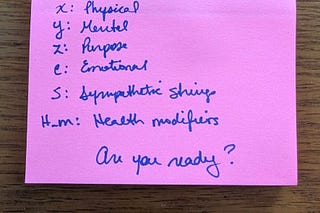 x: Physical
y: Mental
z: Purpose
e: Emotional
S: Sympathetic Strings
H_m: Health modifiers
Are you ready?